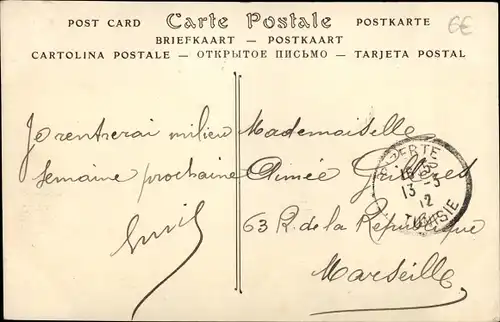 POST CARD Carte Postale POSTKARTE
BRIEFKAART — POSTKAART
CARTOLINA POSTALE — ОТКРЫТОЕ ПИСЬМО — TARJETA POSTAL
6€
Je rentrerai milieu
semaine prochaine
Emil
Mademoiselle
Aimée
63 R. de la République
Marseille
BIZERTE
13 - 3
12
TUNISIE